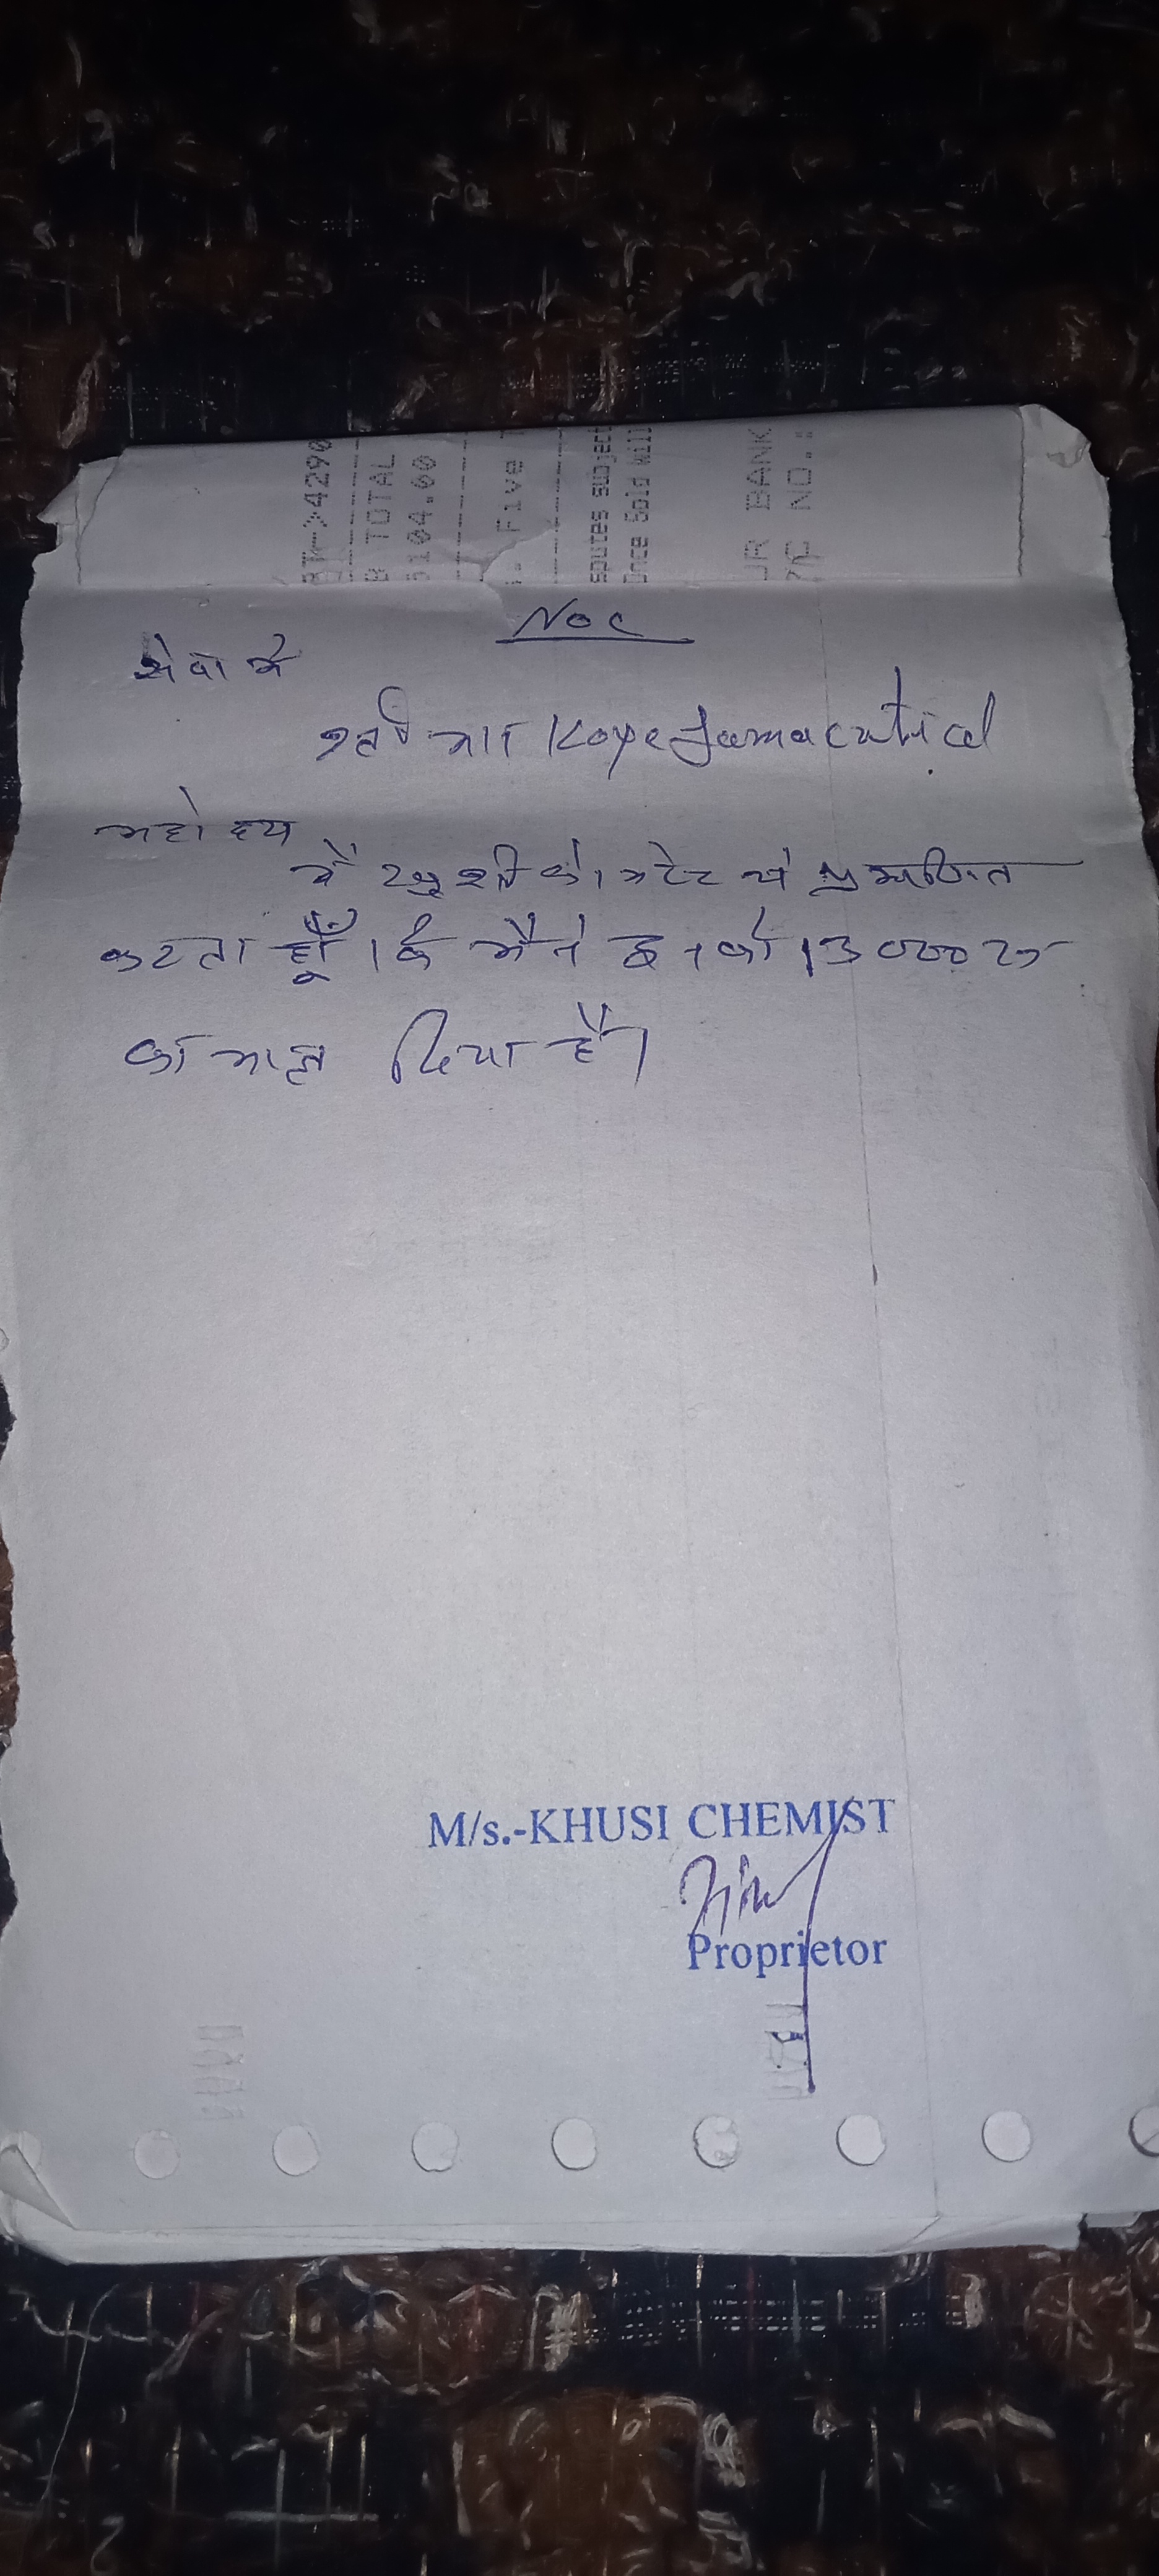 BT->4290
B TOTAL
5104.60
. Five
sputes subject
Once Sold will
UR BANK
NO.:
NOC
सेवा में
श्री मान Kope farmacutical
महोदय
में खुशी
करता हूँ कि मैने इनको 13000 रु
का माल दिया है।
M/s.-KHUSI CHEMIST
Proprietor